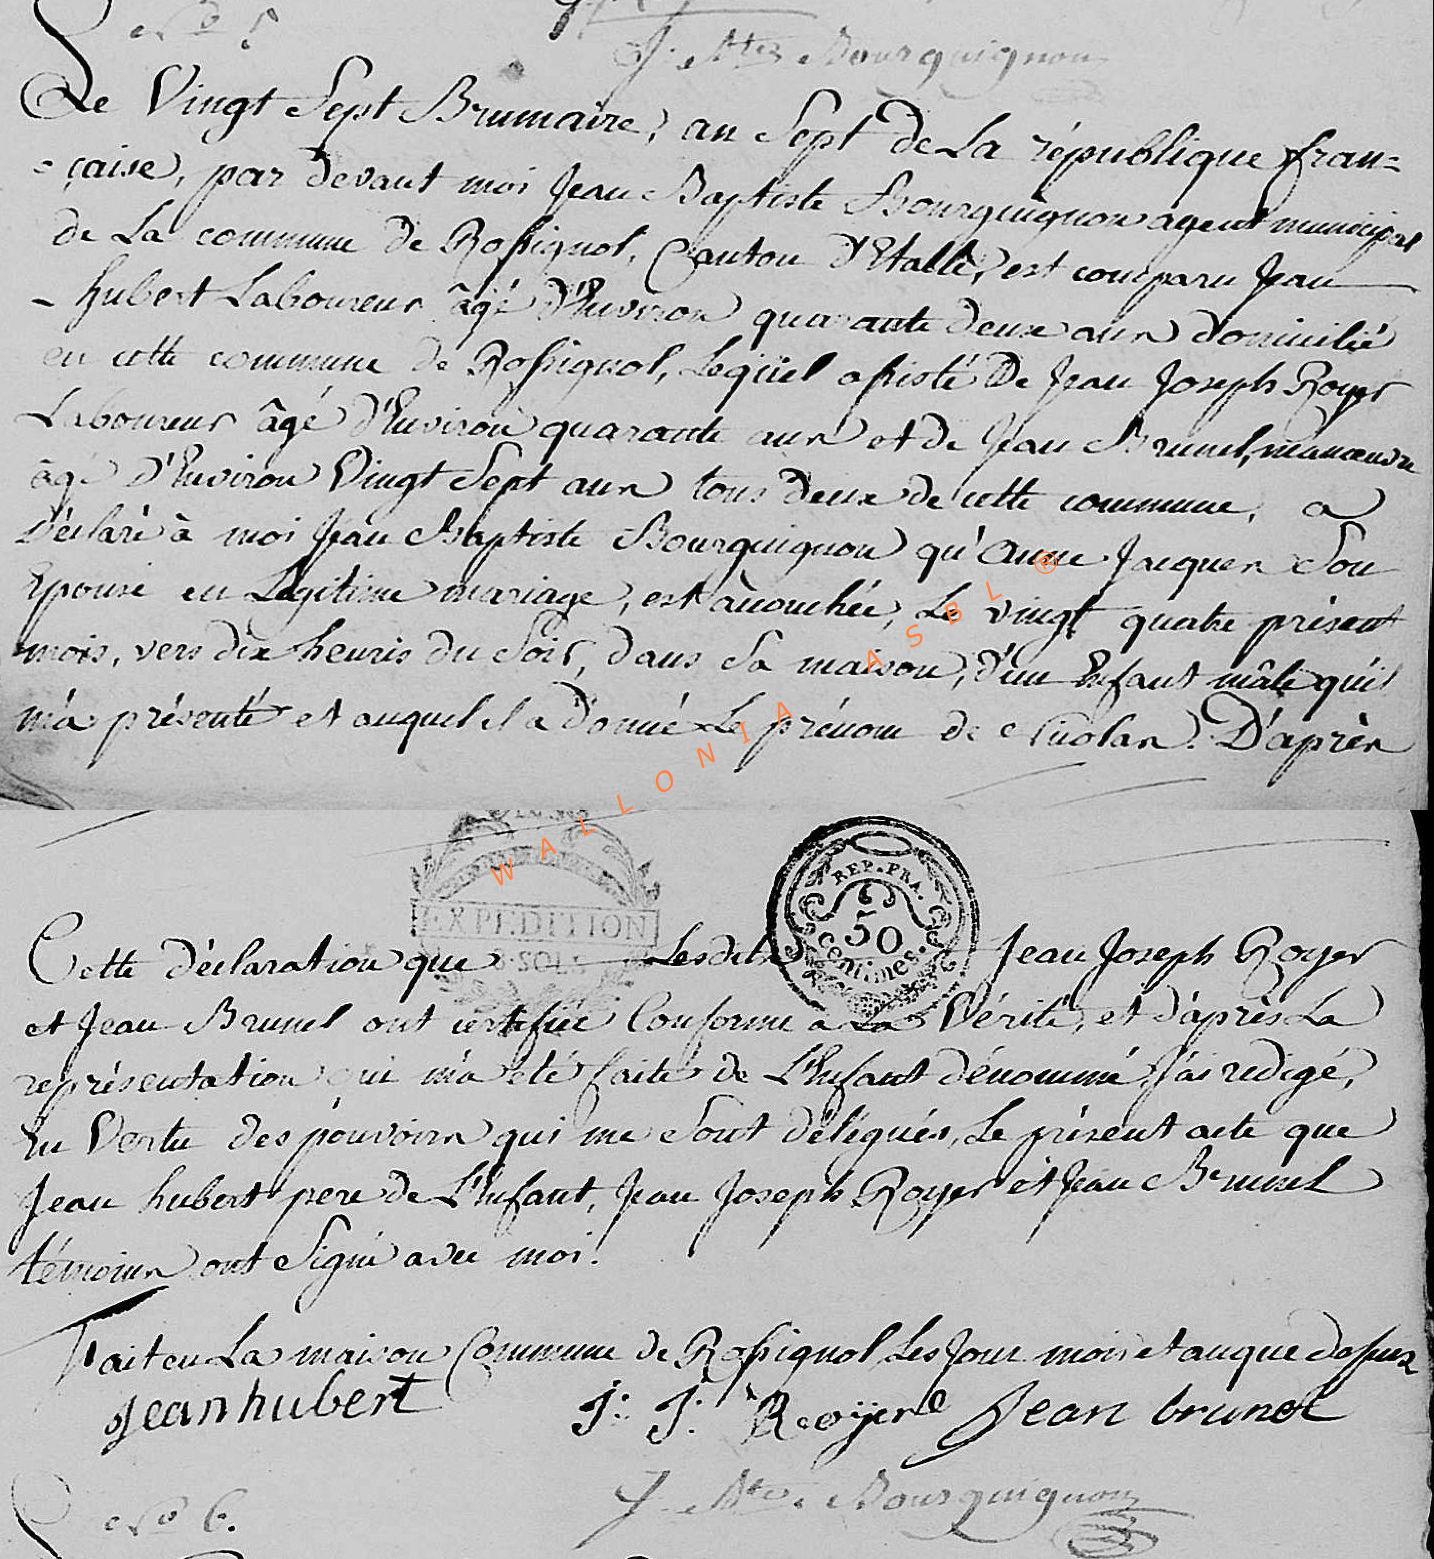 N.o 5.
J. Bte Bourguignon
Le Vingt Sept Brumaire, an Sept de La république fran=
=çaise, par devant moi Jean Baptiste Bourguignon agent municipal
de La commune de Rossignol, Canton d'Etalle, est comparu Jean
- hubert Laboureur âgé d'Environ quarante deux ans domicilié
en cette commune de Rossignol, Lequel assisté De Jean Joseph Royer
Laboureur âgé d'Environ quarante ans et de Jean Brunel, manoeuvre
âgé d'Environ Vingt Sept ans tous deux de cette commune, a
Déclaré à moi Jean Baptiste Bourguignon qu'anne Jacques Son
Epouse en Légitime mariage, est accouchée, Le vingt quatre présent
mois, vers dix heures du Soir, dans Sa maison, d'un Enfant mâle qu'il
m'a présenté et auquel il a donné Le prénom de Nicolas. D'après
WALLONIA ASBL ®
EXPEDITION
SOLS
REP. FRA.
50
centimes.
Cette déclaration que Lesdits Jean Joseph Royer
et Jean Brunel ont certifié Conforme a La Vérité, et d'après La
représentation qui m'a été faite de L'Enfant dénommé, j'ai redigé,
En Vertu des pouvoirs qui me Sont délégués, Le présent acte que
Jean hubert pere de L'Enfant, Jean Joseph Royer et Jean Brunel
témoins ont Signé avec moi.
Fait en La maison Commune de Rossignol Les Jour mois et an que dessus
Jean hubert J: J: Royer Jean brunel
J. Bte Bourguignon
N.o 6.